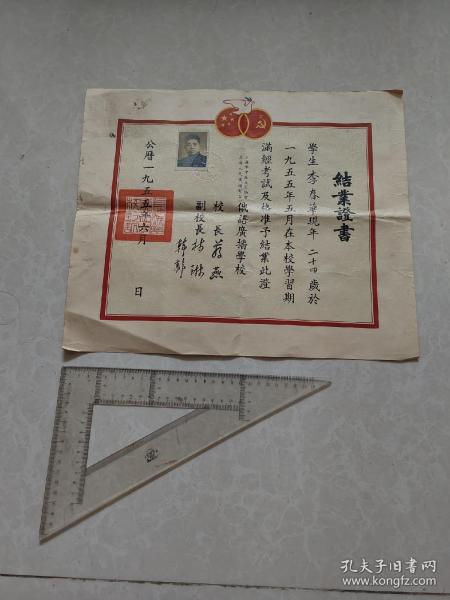 結業證書
學生李春華現年二十四歲於
一九五五年五月在本校學習期
滿經考試及格准予結業此證
俄語廣播學校
校長
副校長
公曆一九五五年六月 日
孔夫子旧书网
www.kongfz.com